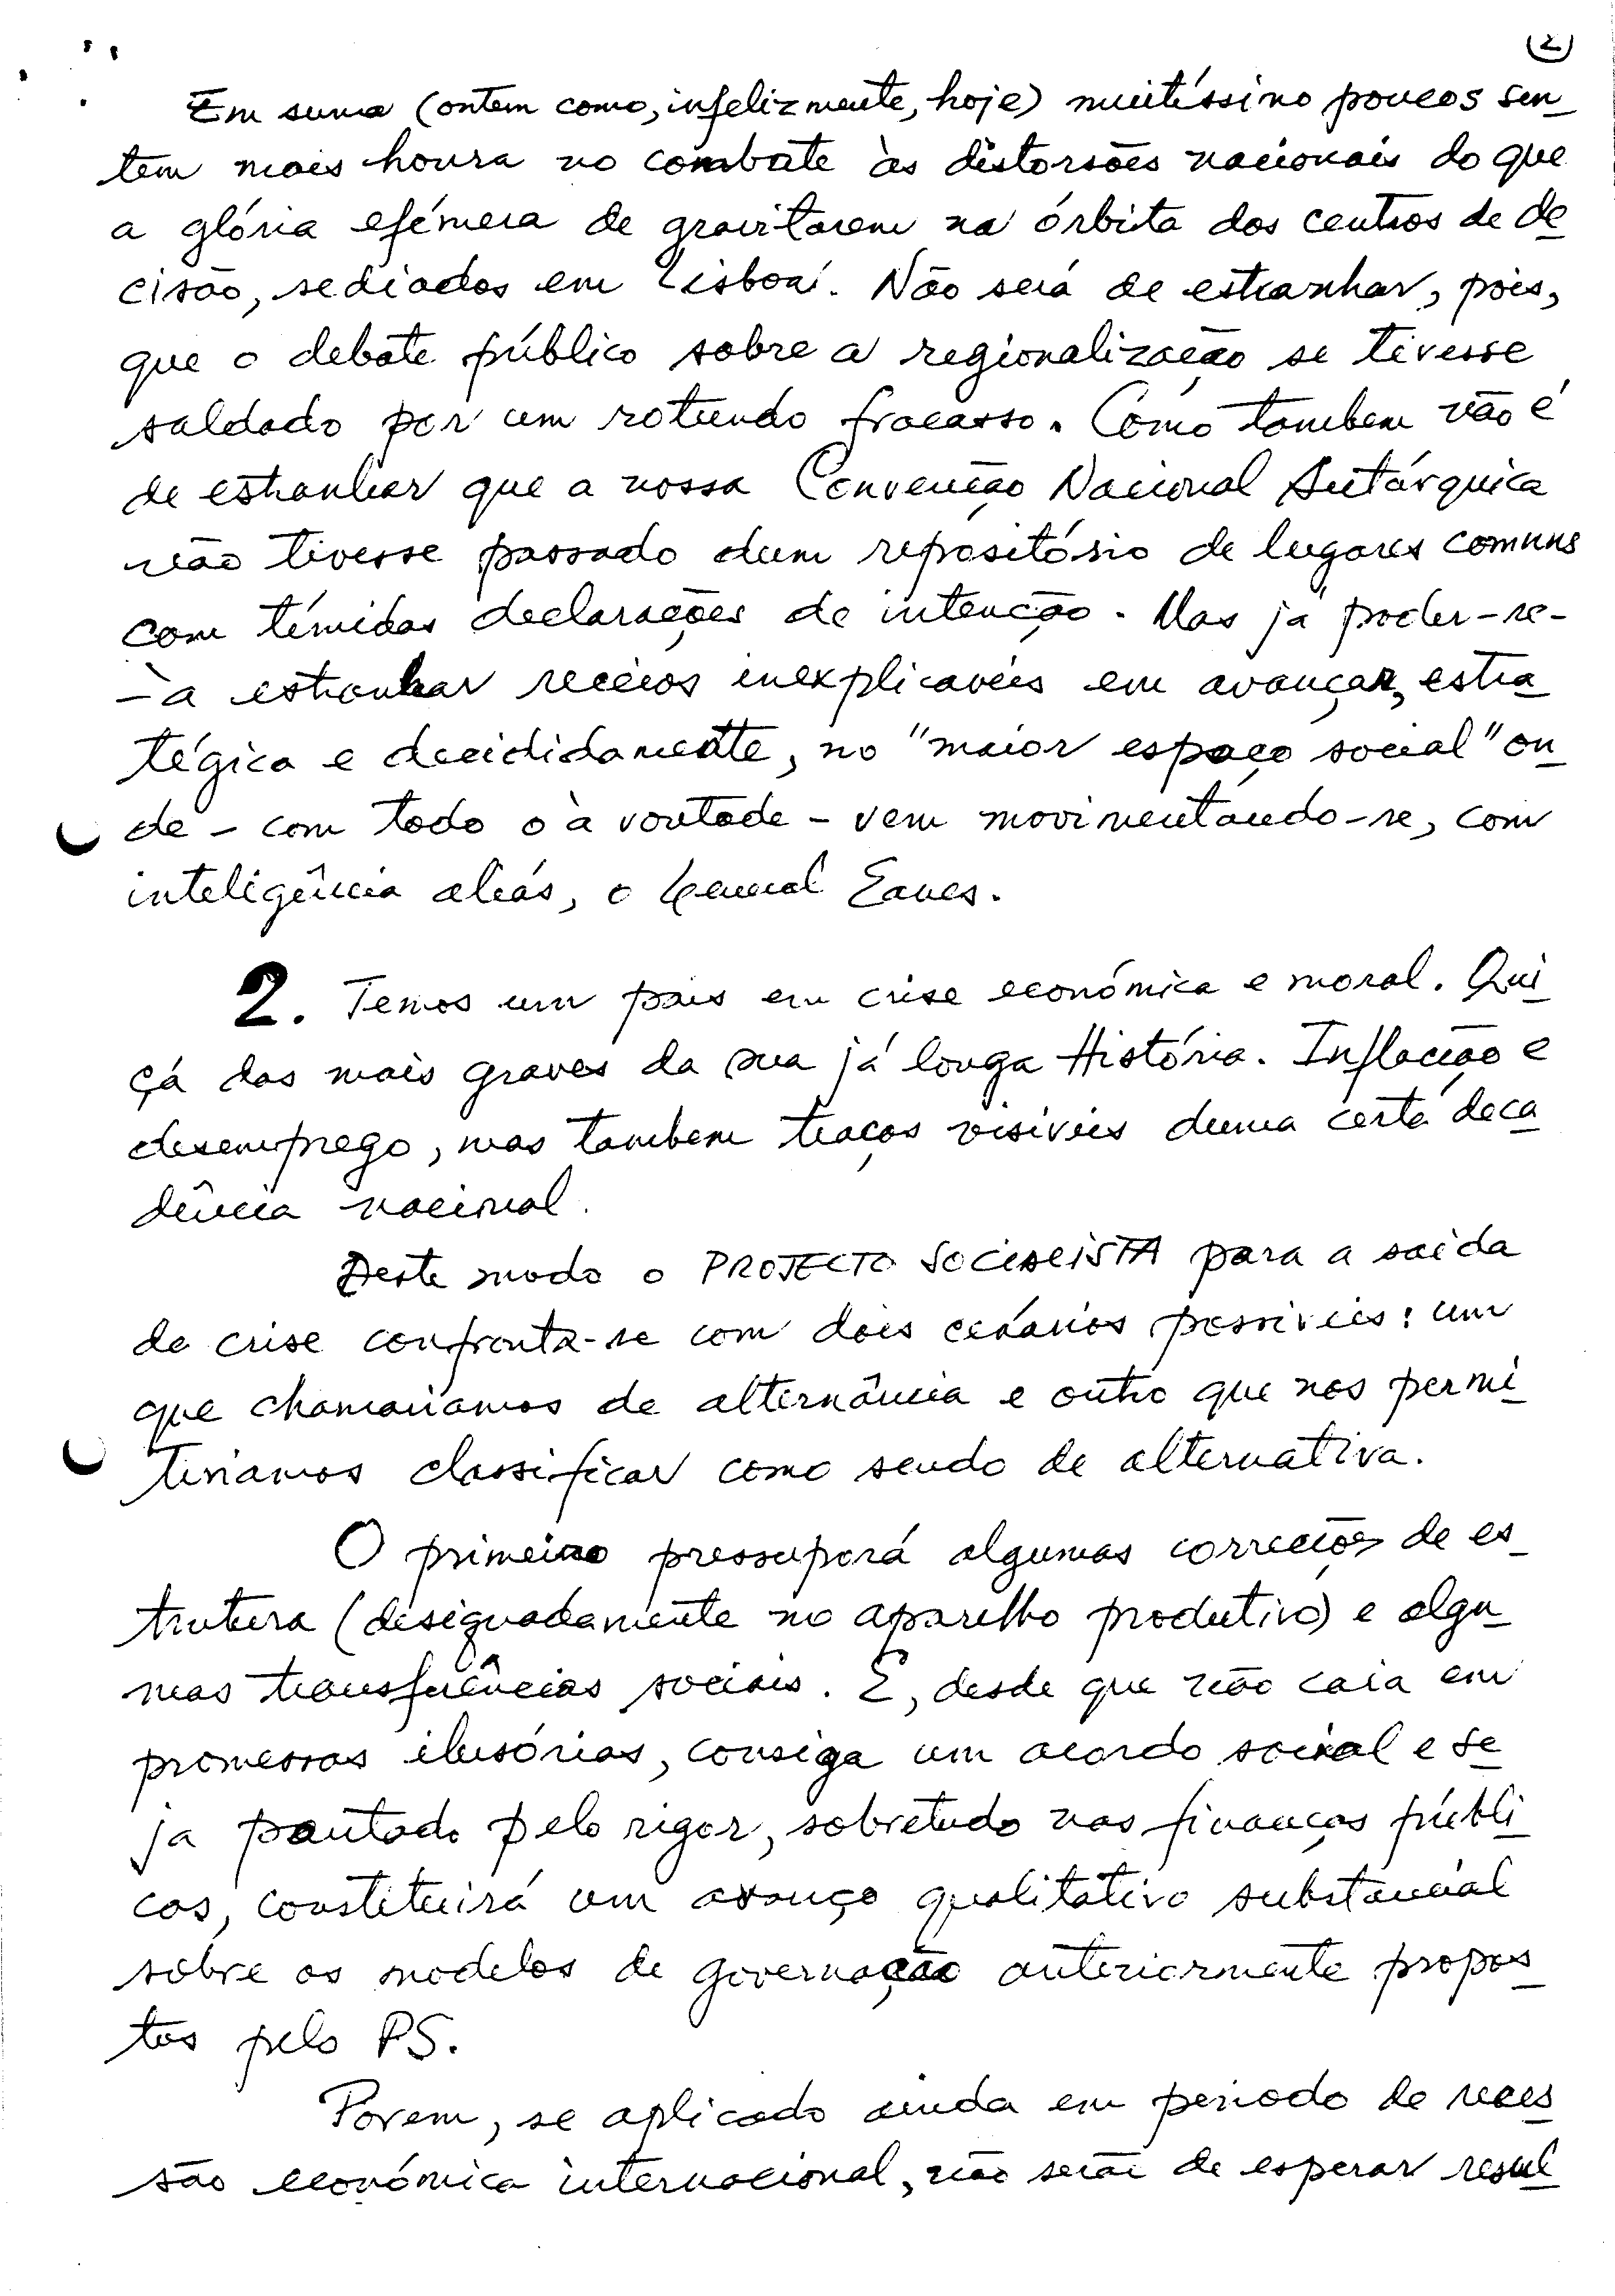 (2)
Em suma (ontem como, infelizmente, hoje) muitíssimo poucos sen_
tem mais honra no combate às distorsões nacionais do que
a glória efémera de gravitarem na órbita dos centros de de_
cisão, sediados em Lisboa. Não será de estranhar, pois,
que o debate público sobre a regionalização se tivesse
saldado por um rotundo fracasso. Como tambem não é
de estranhar que a nossa Convenção Nacional Autárquica
não tivesse passado dum repositório de lugares comuns
com tímidas declarações de intenção. Mas já poder-se-
-á estranhar receios inexplicáveis em avançar, estra_
tégica e decididamente, no "maior espaço social" on_
de - com todo o à vontade - vem movimentando-se, com
inteligência aliás, o General Eanes.
2. Temos um país em crise económica e moral. Qui_
çá das mais graves da sua já longa História. Inflação e
desemprego, mas tambem traços visíveis duma certa deca_
dência nacional.
Deste modo o PROJECTO SOCIALISTA para a saída
da crise confronta-se com dois cenários possíveis: um
que chamaríamos de alternância e outro que nos permi_
tiríamos classificar como sendo de alternativa.
O primeiro pressuporá algumas correcções de es_
trutura (designadamente no aparelho produtivo) e algu_
mas transferências sociais. E, desde que não caia em
promessas ilusórias, consiga um acordo social e se_
ja pautado pelo rigor, sobretudo nas finanças públi_
cas, constituirá um avanço qualitativo substancial
sobre os modelos de governação anteriormente propos_
tos pelo PS.
Porem, se aplicado ainda em período de reces_
são económica internacional, não serão de esperar resul_